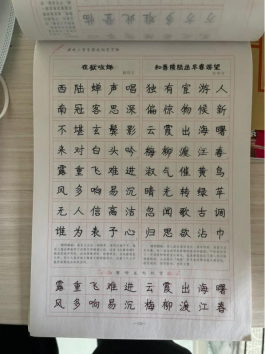 在狱咏蝉 和晋陵陆丞早春游望
西陆蝉声唱 独有宦游人
南冠客思深 偏惊物候新
不堪玄鬓影 云霞出海曙
来对白头吟 梅柳渡江春
露重飞难进 淑气催黄鸟
风多响易沉 晴光转绿蘋
无人信高洁 忽闻歌古调
谁为表予心 归思欲沾巾
露重飞难进 云霞出海曙
风多响易沉 梅柳渡江春